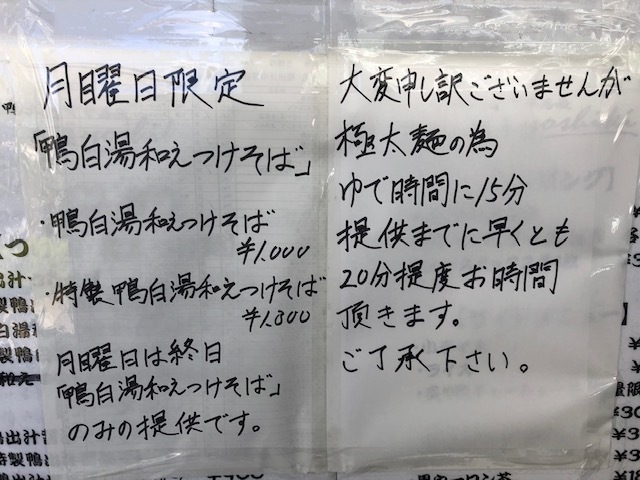 月曜日限定
「鴨白湯和えつけそば」
・鴨白湯和えつけそば
¥1.000
・特製鴨白湯和えつけそば
¥1.300
月曜日は終日
「鴨白湯和えつけそば」
のみの提供です。
大変申し訳ございませんが
極太麺の為
ゆで時間に15分
提供までに早くとも
20分提度お時間
頂きます。
ご了承下さい。